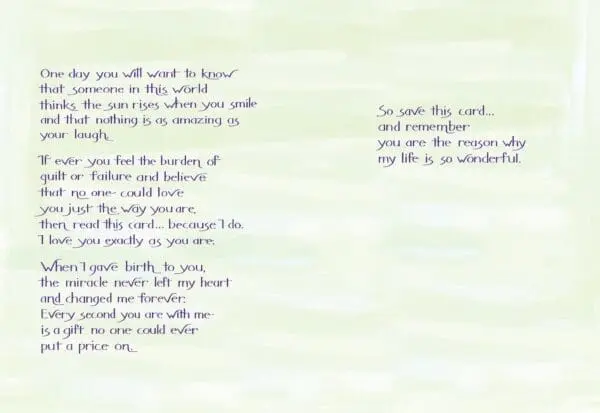 One day you will want to know
that someone in this world
thinks the sun rises when you smile
and that nothing is as amazing as
your laugh.
If ever you feel the burden of
guilt or failure and believe
that no one could love
you just the way you are,
then read this card... because I do.
I love you exactly as you are.
When I gave birth to you,
the miracle never left my heart
and changed me forever.
Every second you are with me
is a gift no one could ever
put a price on.
So save this card...
and remember
you are the reason why
my life is so wonderful.